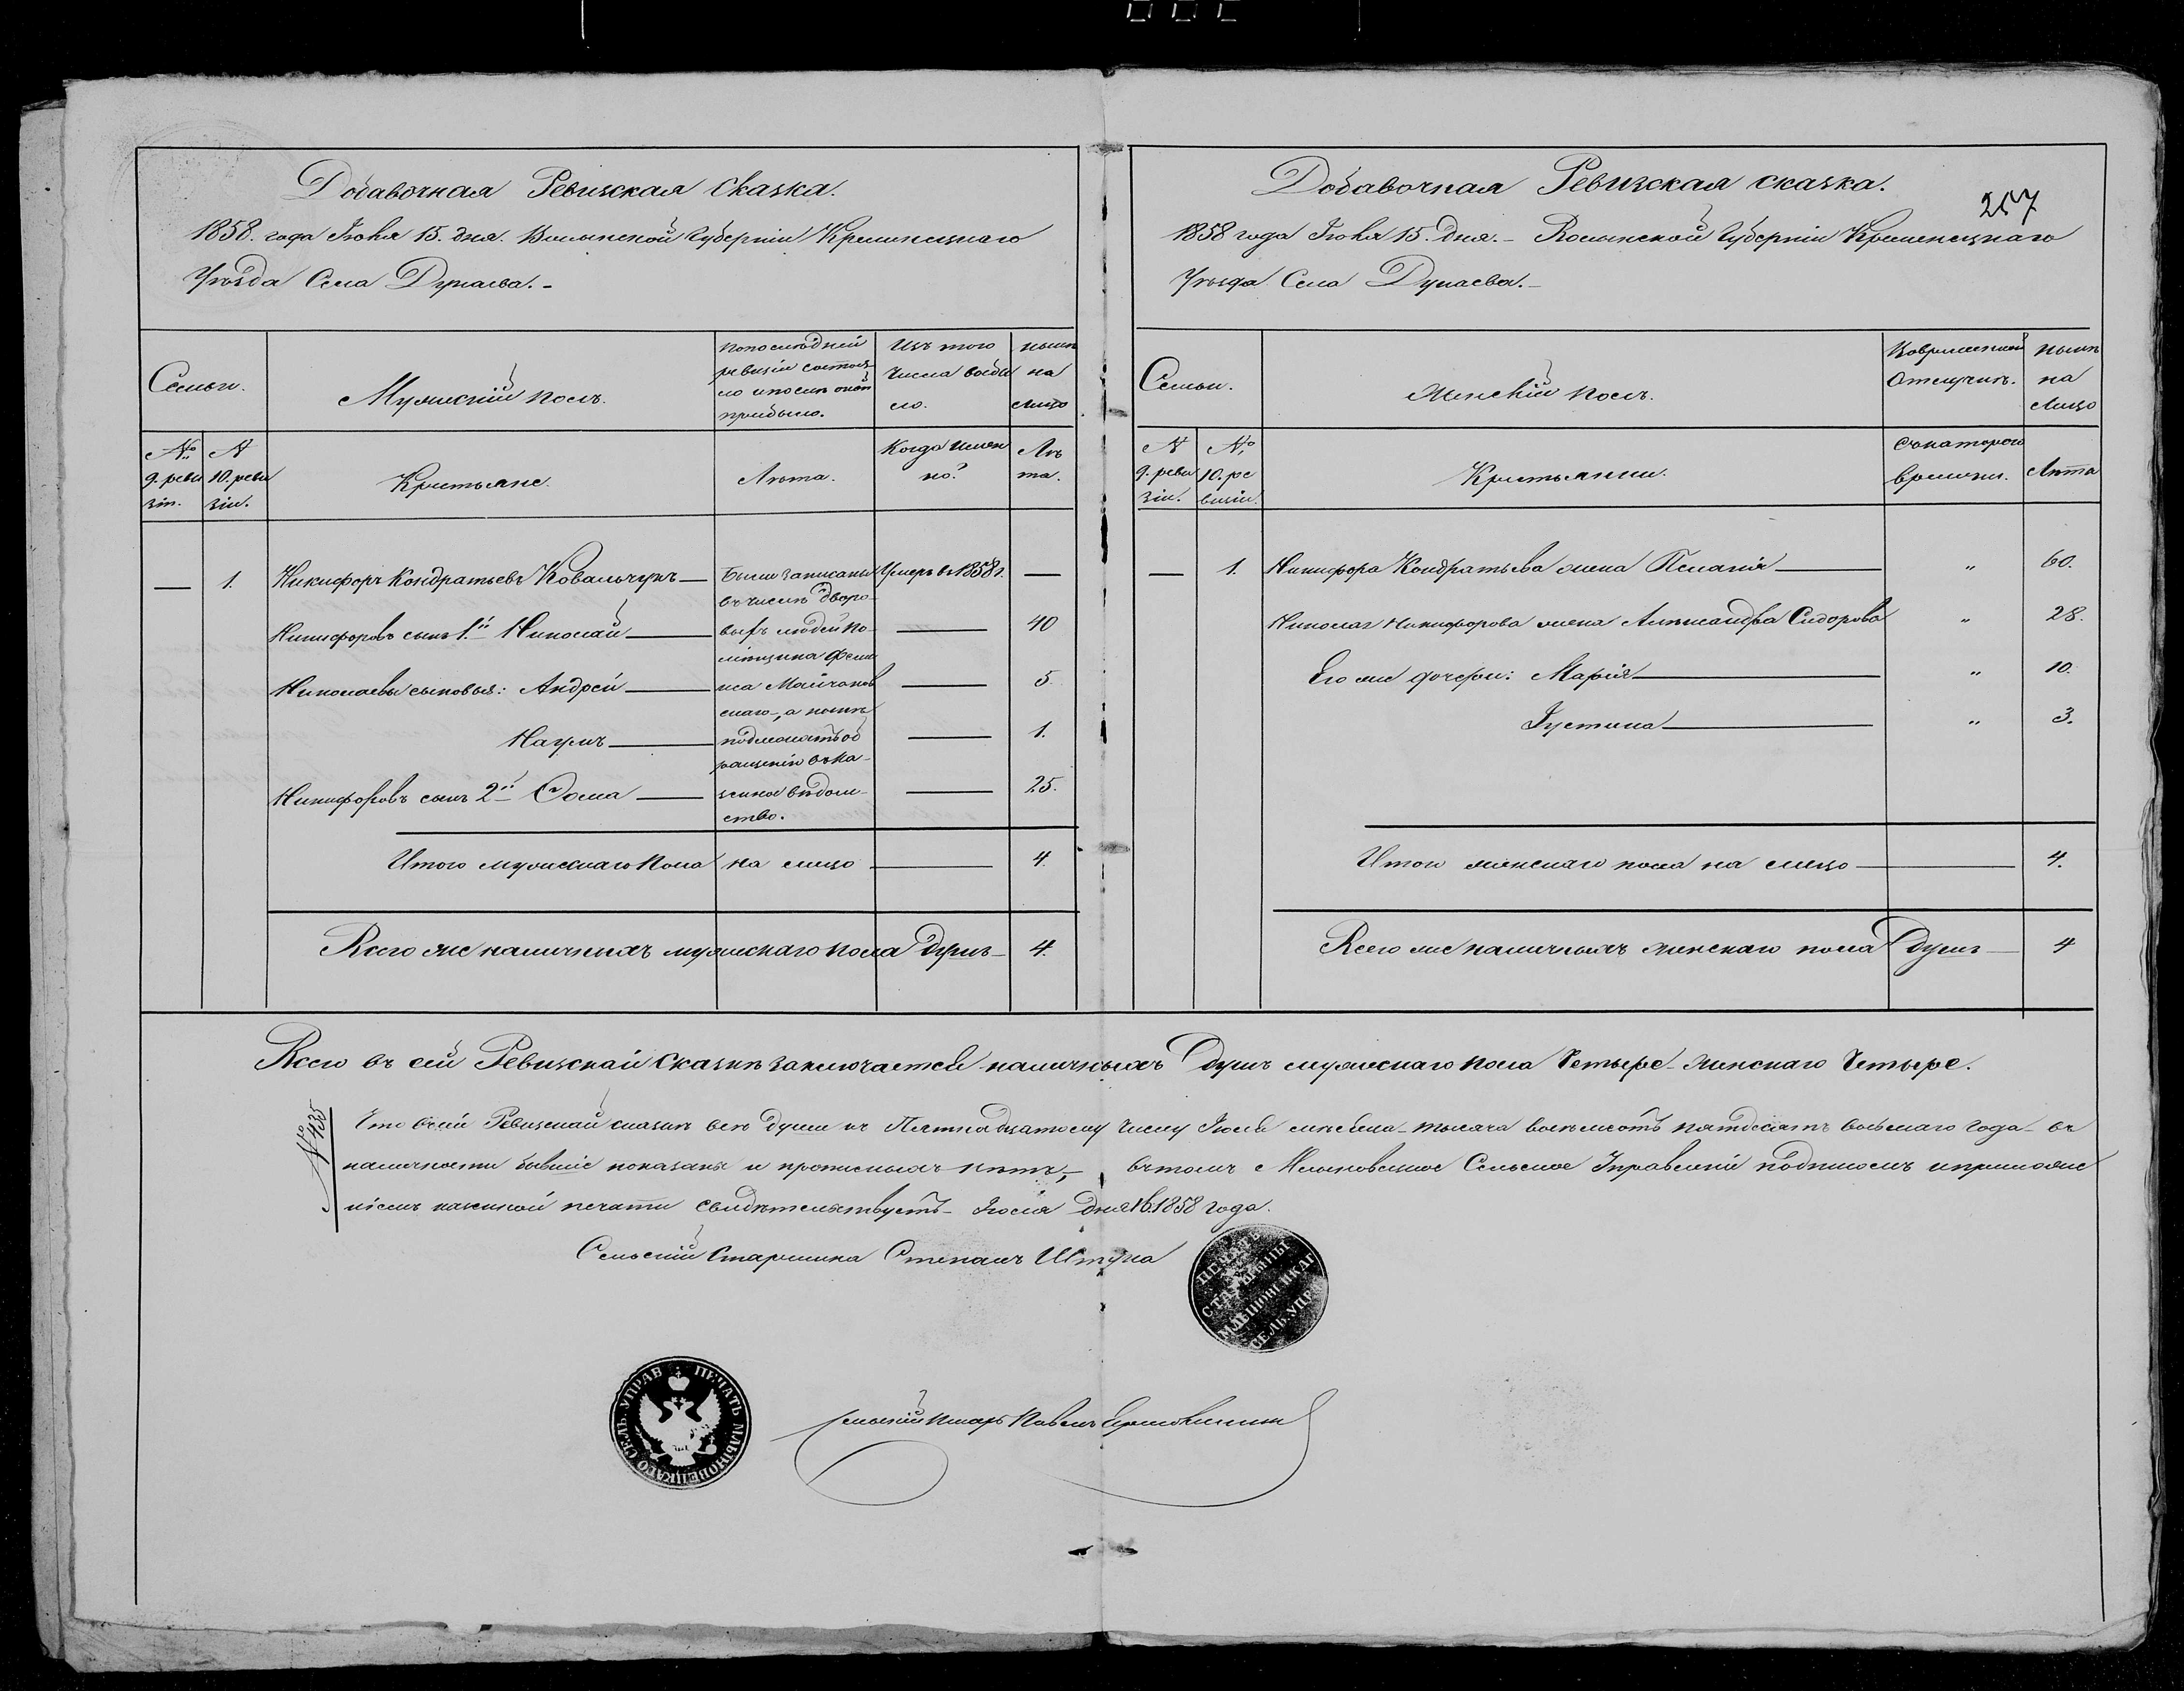 Добавочная Ревизская Сказка.
1858. года Іюня 15. дня. Волынской Губерніи Кременецкаго
Уѣзда Села Дунаева.-
Семьи.
Мужескій полъ.
По последней
ревизіи состоя-
ло и после оной
прибыло.
Изъ того
числа выбы
ло.
ныне
на
лицо
№
9. реви
зіи.
№
10. реви
зіи.
Крестьяне.
Лѣта.
Когда имен
но?
Лѣ
та.
— 1. Никифоръ Кондратьевъ Ковальчукъ — Были записаны Умеръ въ 1858 г. —
въ числѣ дворо-
Никифоровъ сынъ 1й Николай — выхъ людей по- — 40
мѣщика
Николаевы сыновья: Андрей — — 5
скаго, а нынѣ
Наумъ — подлежатъ об — 1.
ращенію въ ка-
Никифоровъ сынъ 2й Фома — зенное вѣдом- — 25.
ство.
Итого мужескаго пола на лицо — 4.
Всего же наличныхъ мужескаго пола душъ — 4.
Добавочная Ревизская сказка.
257
1858 года Іюня 15. Дня. - Волынской Губерніи Кременецкаго
Уѣзда Села Дунаева. -
Семьи.
Женскій полъ.
Во временной
Отлучкѣ.
нынѣ
на
лицо
№
9. реви
зіи.
№
10. ре
визіи.
Крестьянки.
Съ котораго
времени.
Лѣта
— 1. Никифора Кондратьева жена Пелагія — " 60.
Николая Никифорова жена Александра Сидорова " 28.
Его же дочери: Марія — " 10.
Іустина — " 3.
Итого женскаго пола на лицо — 4.
Всего же наличныхъ женскаго пола Душъ — 4
Всего въ сей Ревизской Сказкѣ заключается наличныхъ Душъ мужескаго пола Четыре - женскаго Четыре.
№ 435
Что въ сей Ревизской сказкѣ всѣ души къ Пятнадцатому числу Іюня мѣсяца тысяча восемсотъ пятдесятъ восьмаго года въ
наличности бывшіе показаны и прописныхъ нѣтъ, въ томъ Сельское Управленіе подписомъ и приложе
ніемъ казенной печати свидѣтельствуетъ - Іюля Дня 16. 1858 года.
Сельскій Старшина Степанъ Штука
ПЕЧАТЬ
СТАРШИНЫ
СЕЛЬ. УПР
ПЕЧАТЬ МЛЫНОВЕЦКАГО СЕЛЬ. УПРАВ
Сельскій писарь Павелъ